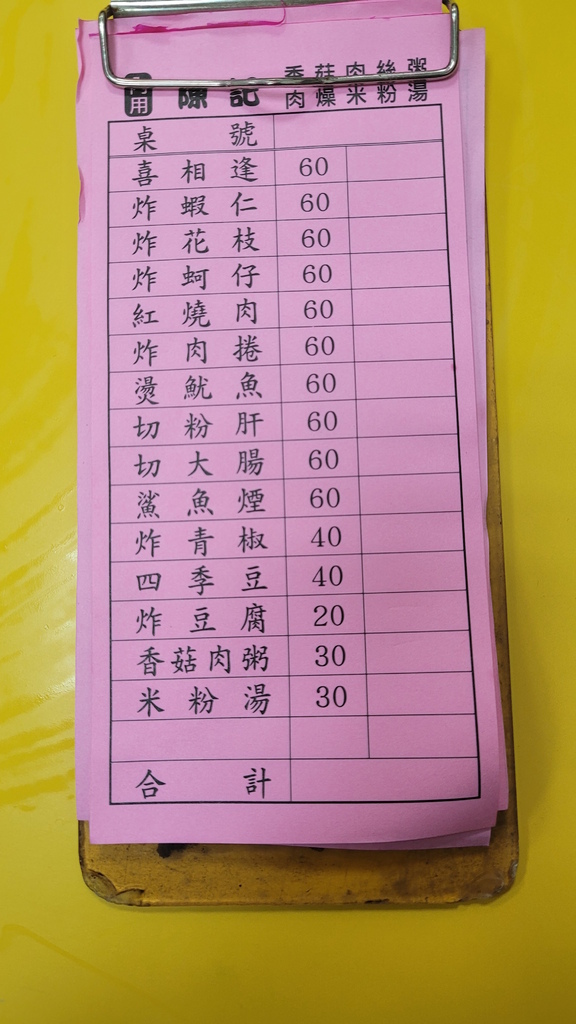 內用 陳記 香菇肉絲粥
肉燥米粉湯
桌號
喜相逢 60
炸蝦仁 60
炸花枝 60
炸蚵仔 60
紅燒肉 60
炸肉捲 60
燙魷魚 60
切粉肝 60
切大腸 60
鯊魚煙 60
炸青椒 40
四季豆 40
炸豆腐 20
香菇肉粥 30
米粉湯 30
合計